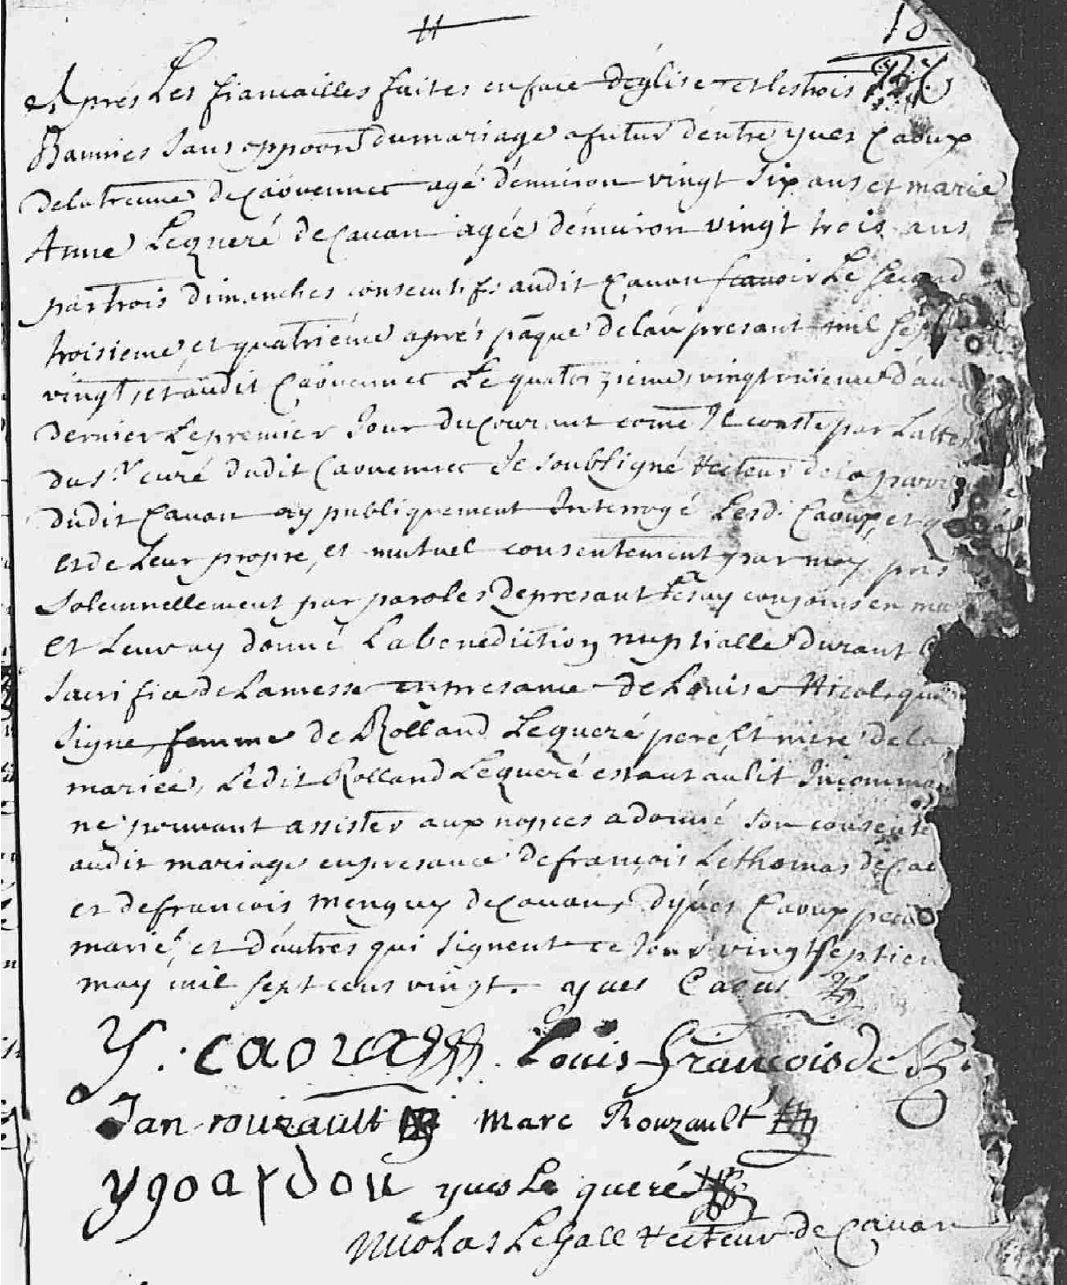 18
Apres Les fiancailles faites en face d'église et les trois
Bannies sans oppoon du mariage a futur d'entre yves Caoux
de la treuve de Caouennec agé d'environ vingt six ans et marie
Anne Lequeré de Cavan agée d'environ vingt trois ans
par trois dimanches consecutifs audit Cavan scavoir Le second
troisieme et quatriéme aprés pâque de l'an presant mil sept
vingt, et audit Caouennec Le quatorzieme, vingt unieme d'av
dernier Le premier Jour du courant come Il conste par L'attes
du sr curé dudit Caouennec Je soubsigné Recteur de la parr
dudit Cavan ay publiquement Interrogé Lesd. Caoux, et
et de Leur propre, et mutuel consentement par moy pris
Solemnellement par paroles de presant Les ay conjoins en ma
et Leur ay donné La benediction nuptialle durant
sacrifice de La messe en presance de Louise Nicol qui
signe, femme de Rolland Lequeré pere, et mere de la
mariée, Ledit Rolland Lequeré estant au lit Incommo
ne pouvant assister aux nopces a donné son consente
audit mariage en presance de françois Lethomas de Cav
et de francois menguy de Cavan, d'yves Caoux pere
marié, et d'autres qui signent ce Jour vingt septiem
may mil sept cens vingt. yves Caous
Y. caoux Louis François de
Jan rouzault Marc Rouzault
y goardon yves Le queré
Nicolas LeGall Recteur de Cavan